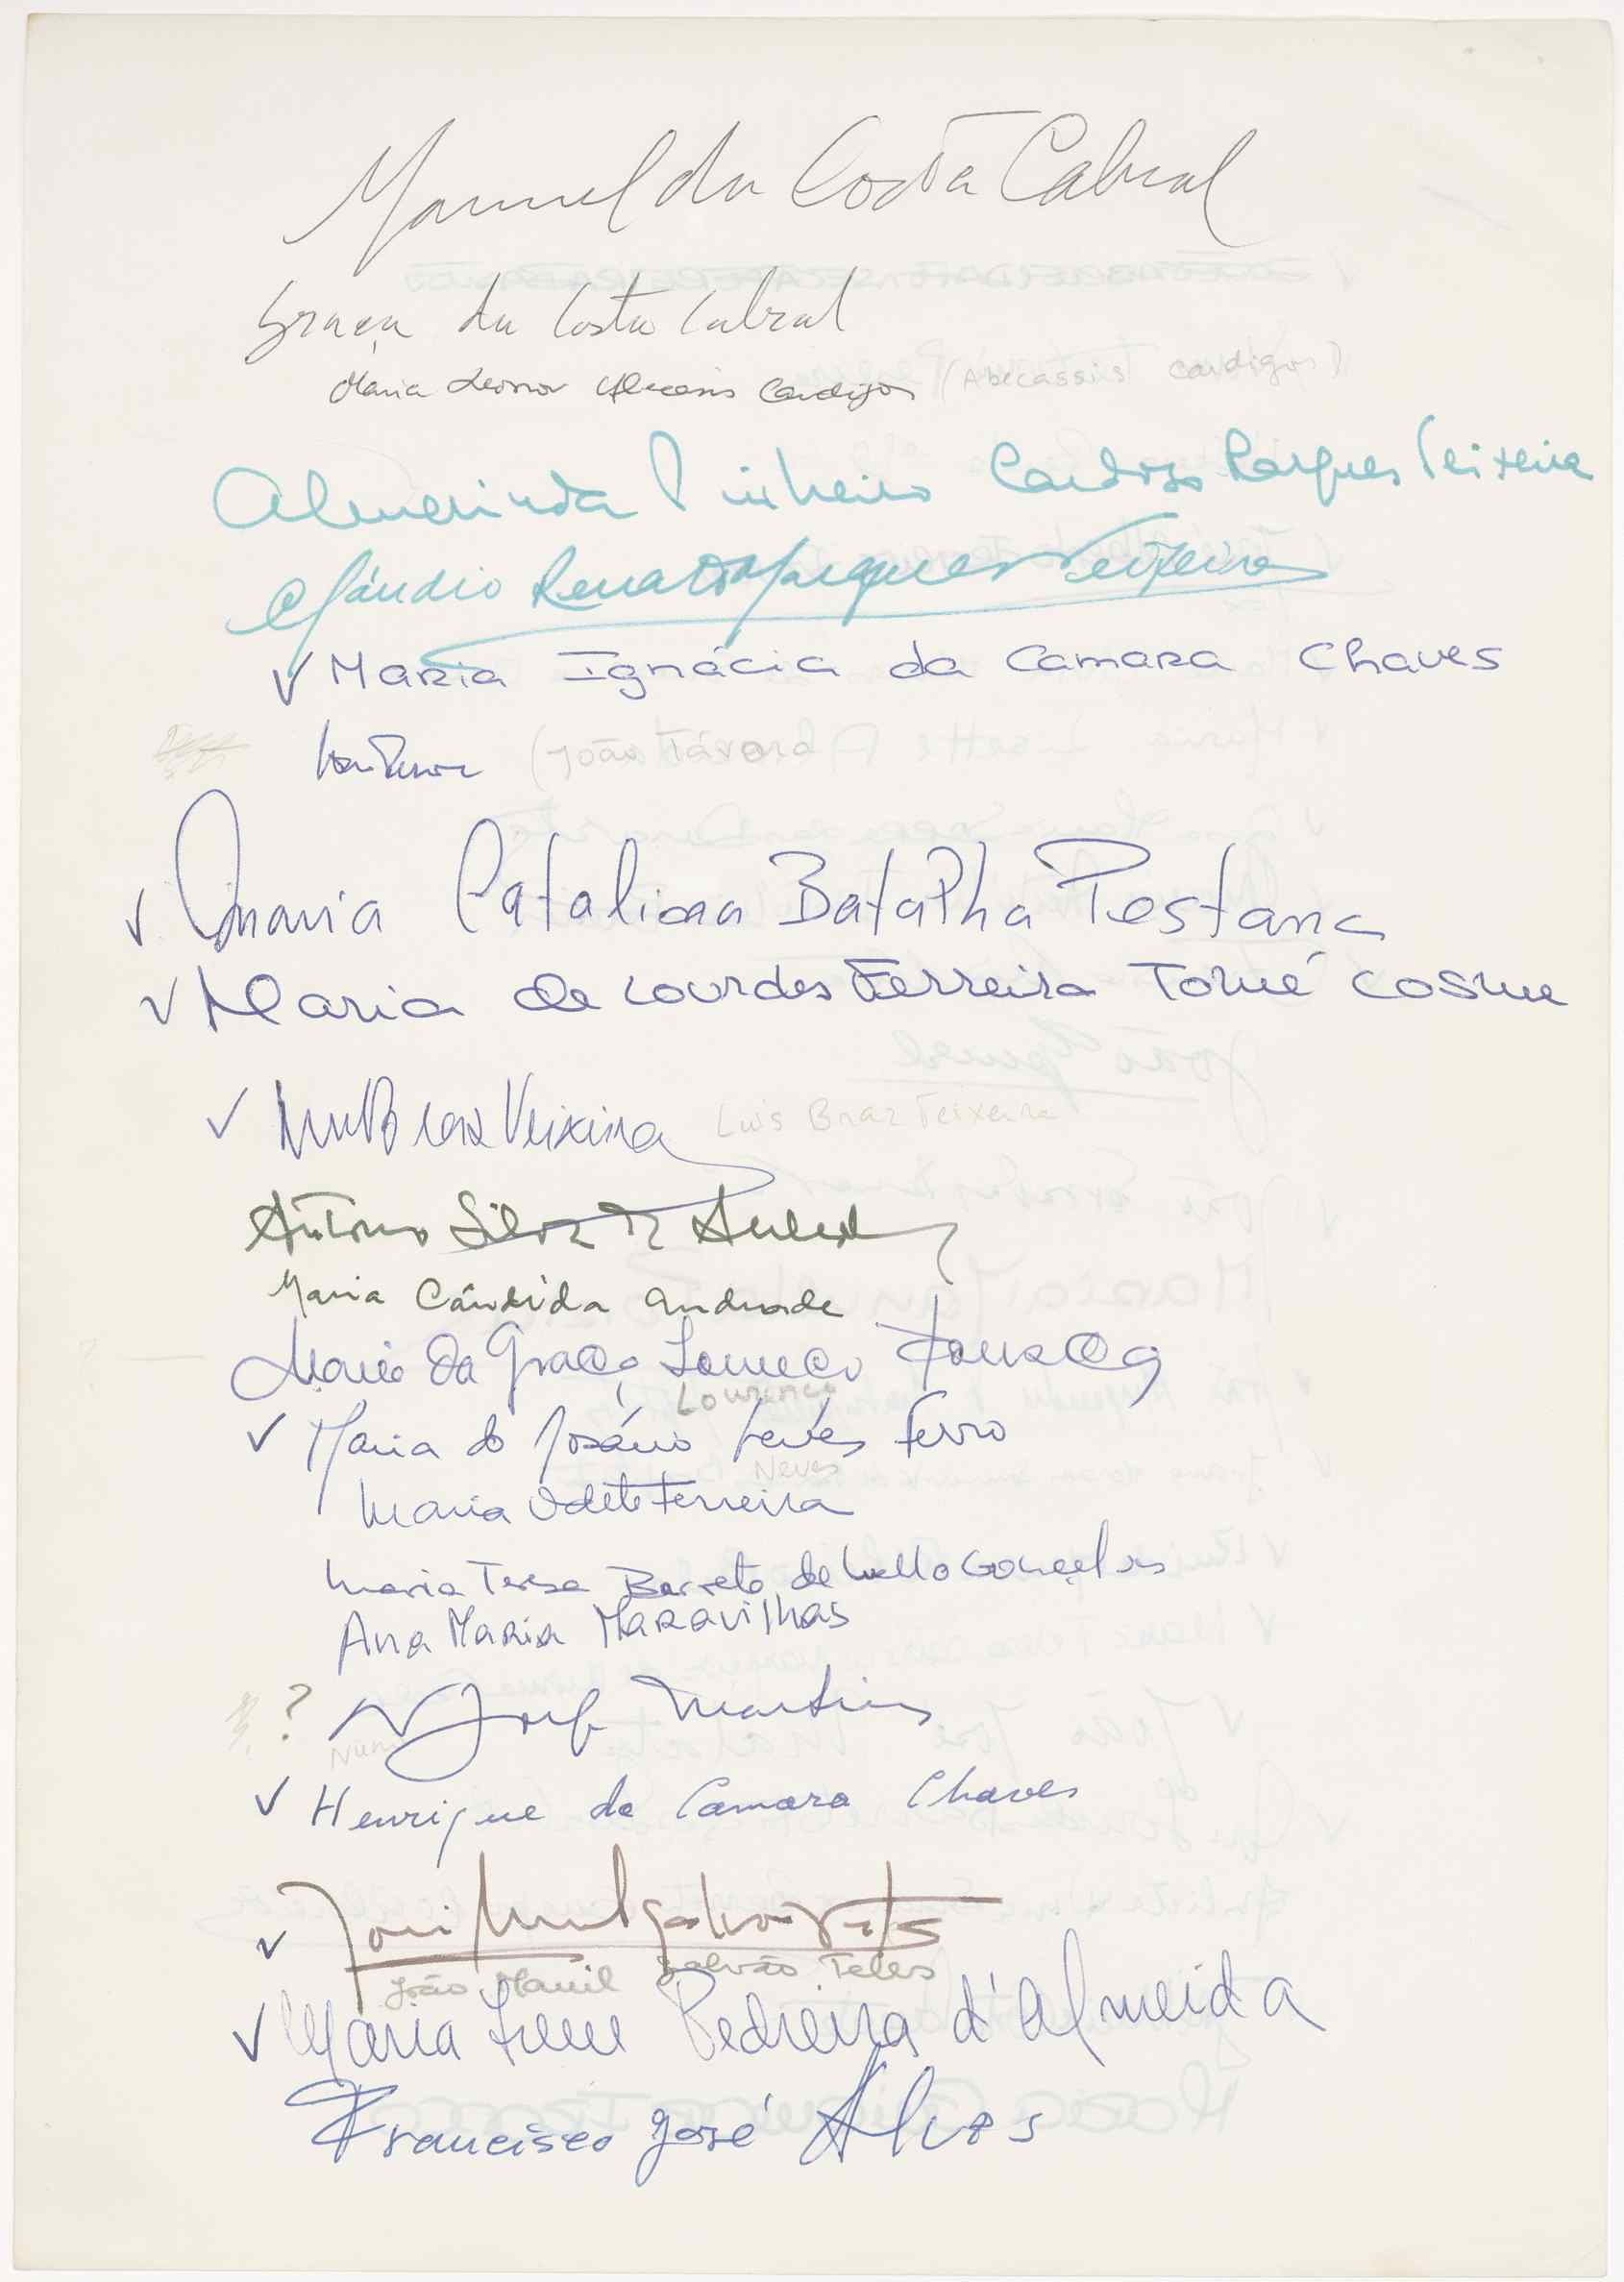 Manuel da Costa Cabral
Graça da Costa Cabral
Maria Leonor Abecasis Cardigos (Abecassis Cardigos)
Almerinda Pinheiro Cardoso Raques Teixeira
Cláudio Renato Teixeira
✓ Maria Ignácia da Camara Chaves
(João Távora)
✓ Maria Catalina Batalha Pestana
✓ Maria de Lourdes Ferreira Tomé Cosme
✓ Luis Braz Teixeira Luis Braz Teixeira
António Silva de Andrade
Maria Cândida Andrade
Maria da Graça Lourenço Fonseca
Lourenço
✓ Maria do Rosário Neves Ferro
Neves
Maria Odete Ferreira
Maria Teresa Barreto de Mello Gonçalves
Ana Maria Maravilhas
? N Jorge Martins
Nuno
✓ Henrique da Camara Chaves
✓
João Manuel Galvão Teles
✓ Maria Irene Pedreira d'Almeida
Francisco José Alves